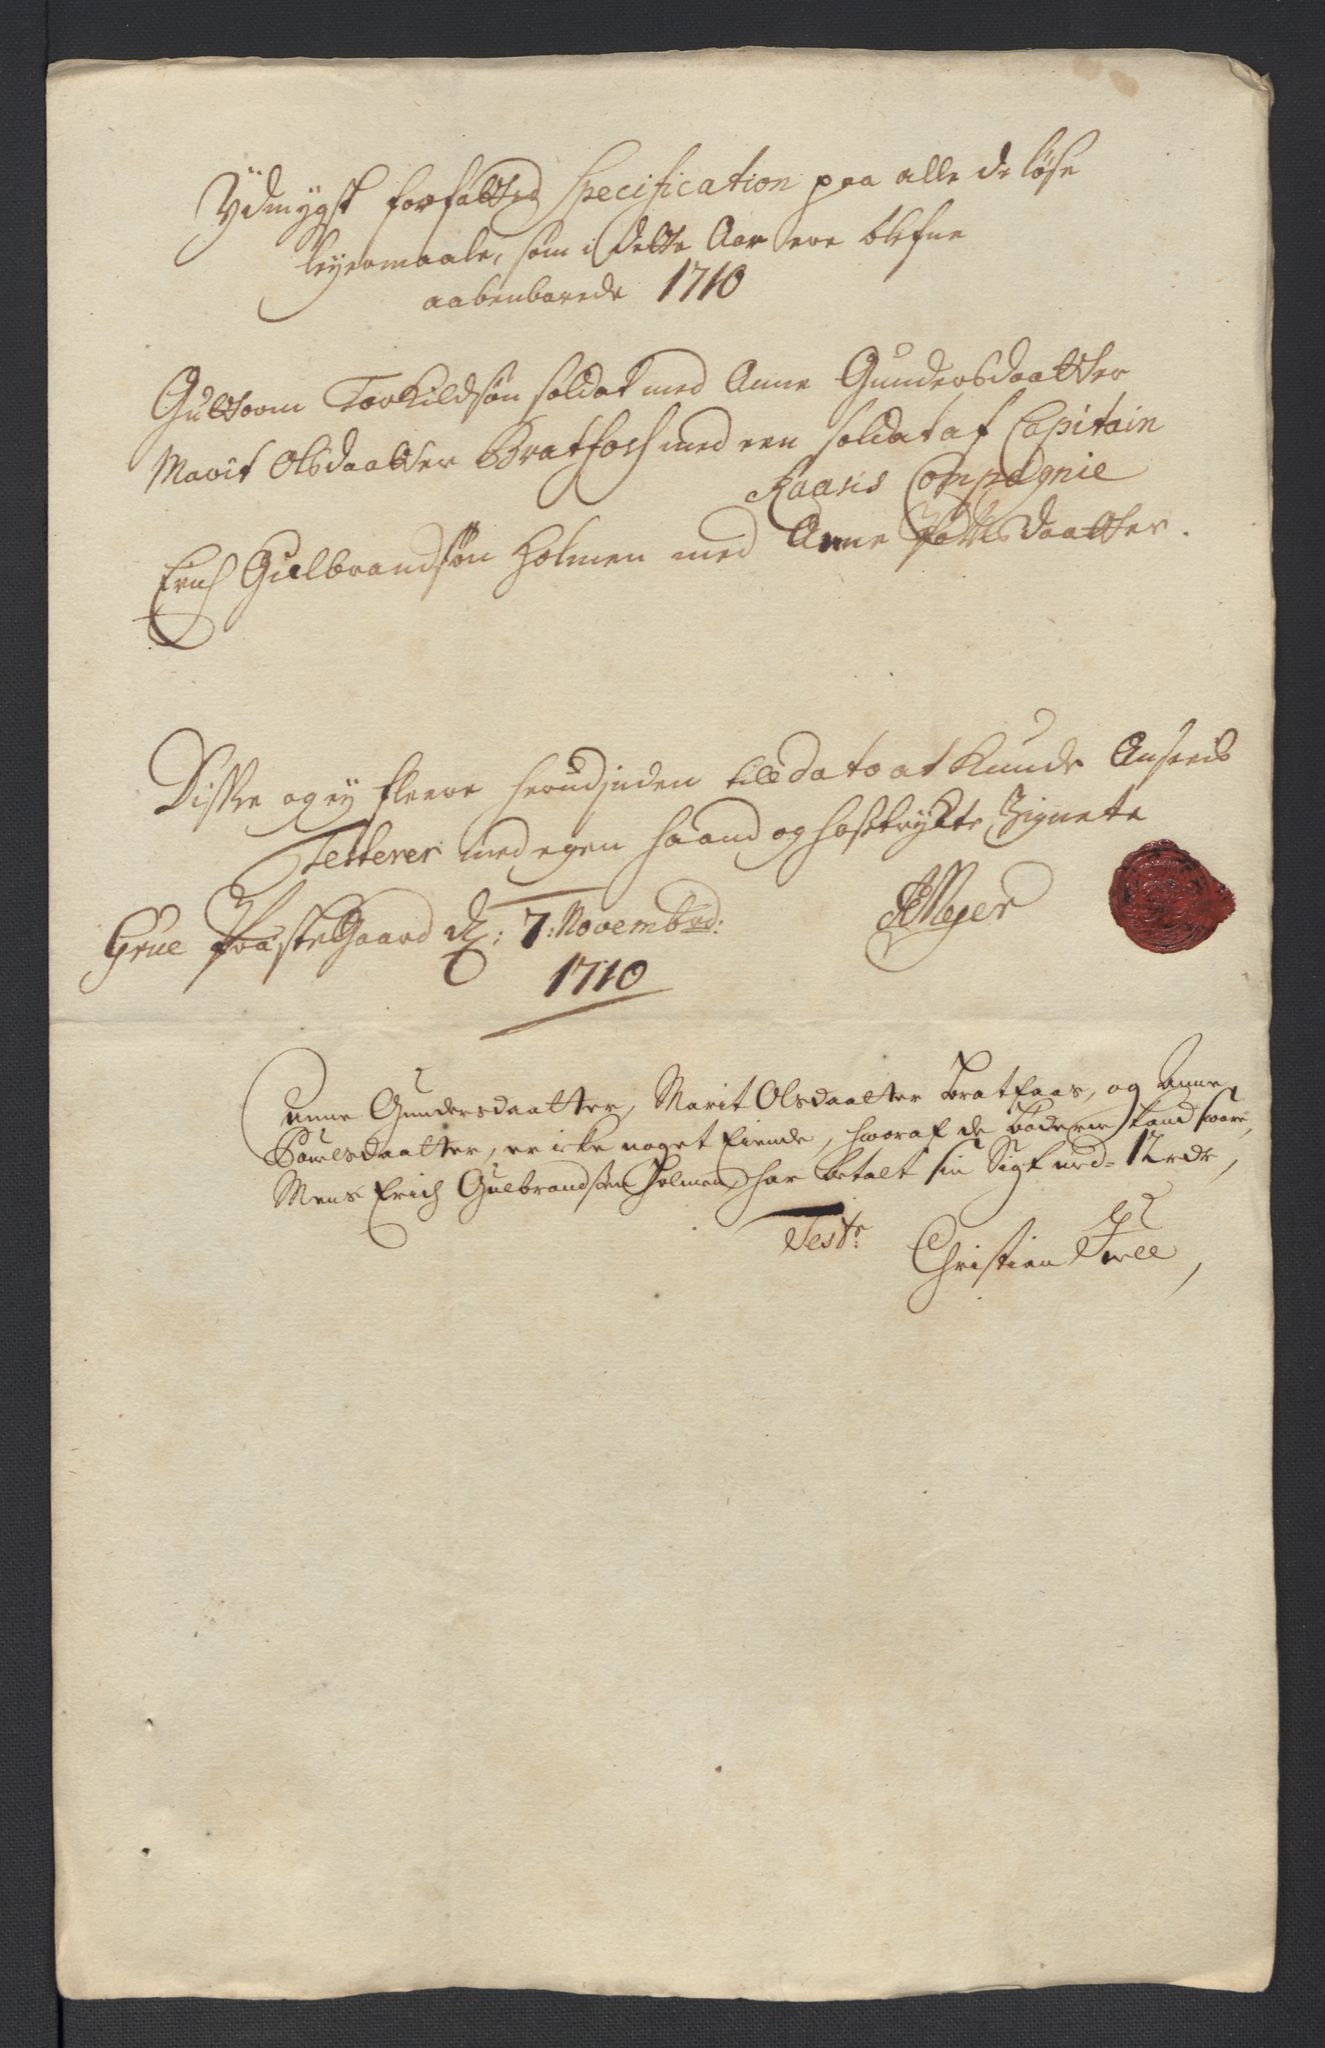 Ydmygst forfatted Specification paa alle de løse
leyermaale, som i dette Aar ere blefne
aabenbarede 1710
Guttorm Torkildsøn soldat med Anne Gundersdaatter
Marit Olsdaatter Bratfoss med een soldat af Capitain
Raasis Compagnie
Erich Gulbrandsøn Holmen med Anne Pofvelsdaatter.
Disse og ey fleere herudjnden till dato at kunde Ansees
Testerer med egen haand og hostrykte Zignete
Grue Præstegaard d: 7: Novembrd:
1710
AMejer
Anne Gundersdaatter, Marit Olsdaatter Bratfaas, og Anne
Povelsdaatter, er icke noget Eiende, hvoraf de Bøderne kand svare,
Mens Erich Gulbrandsøn Holmen har betalt sin Sigt med 12 rdr,
Test:
Christian